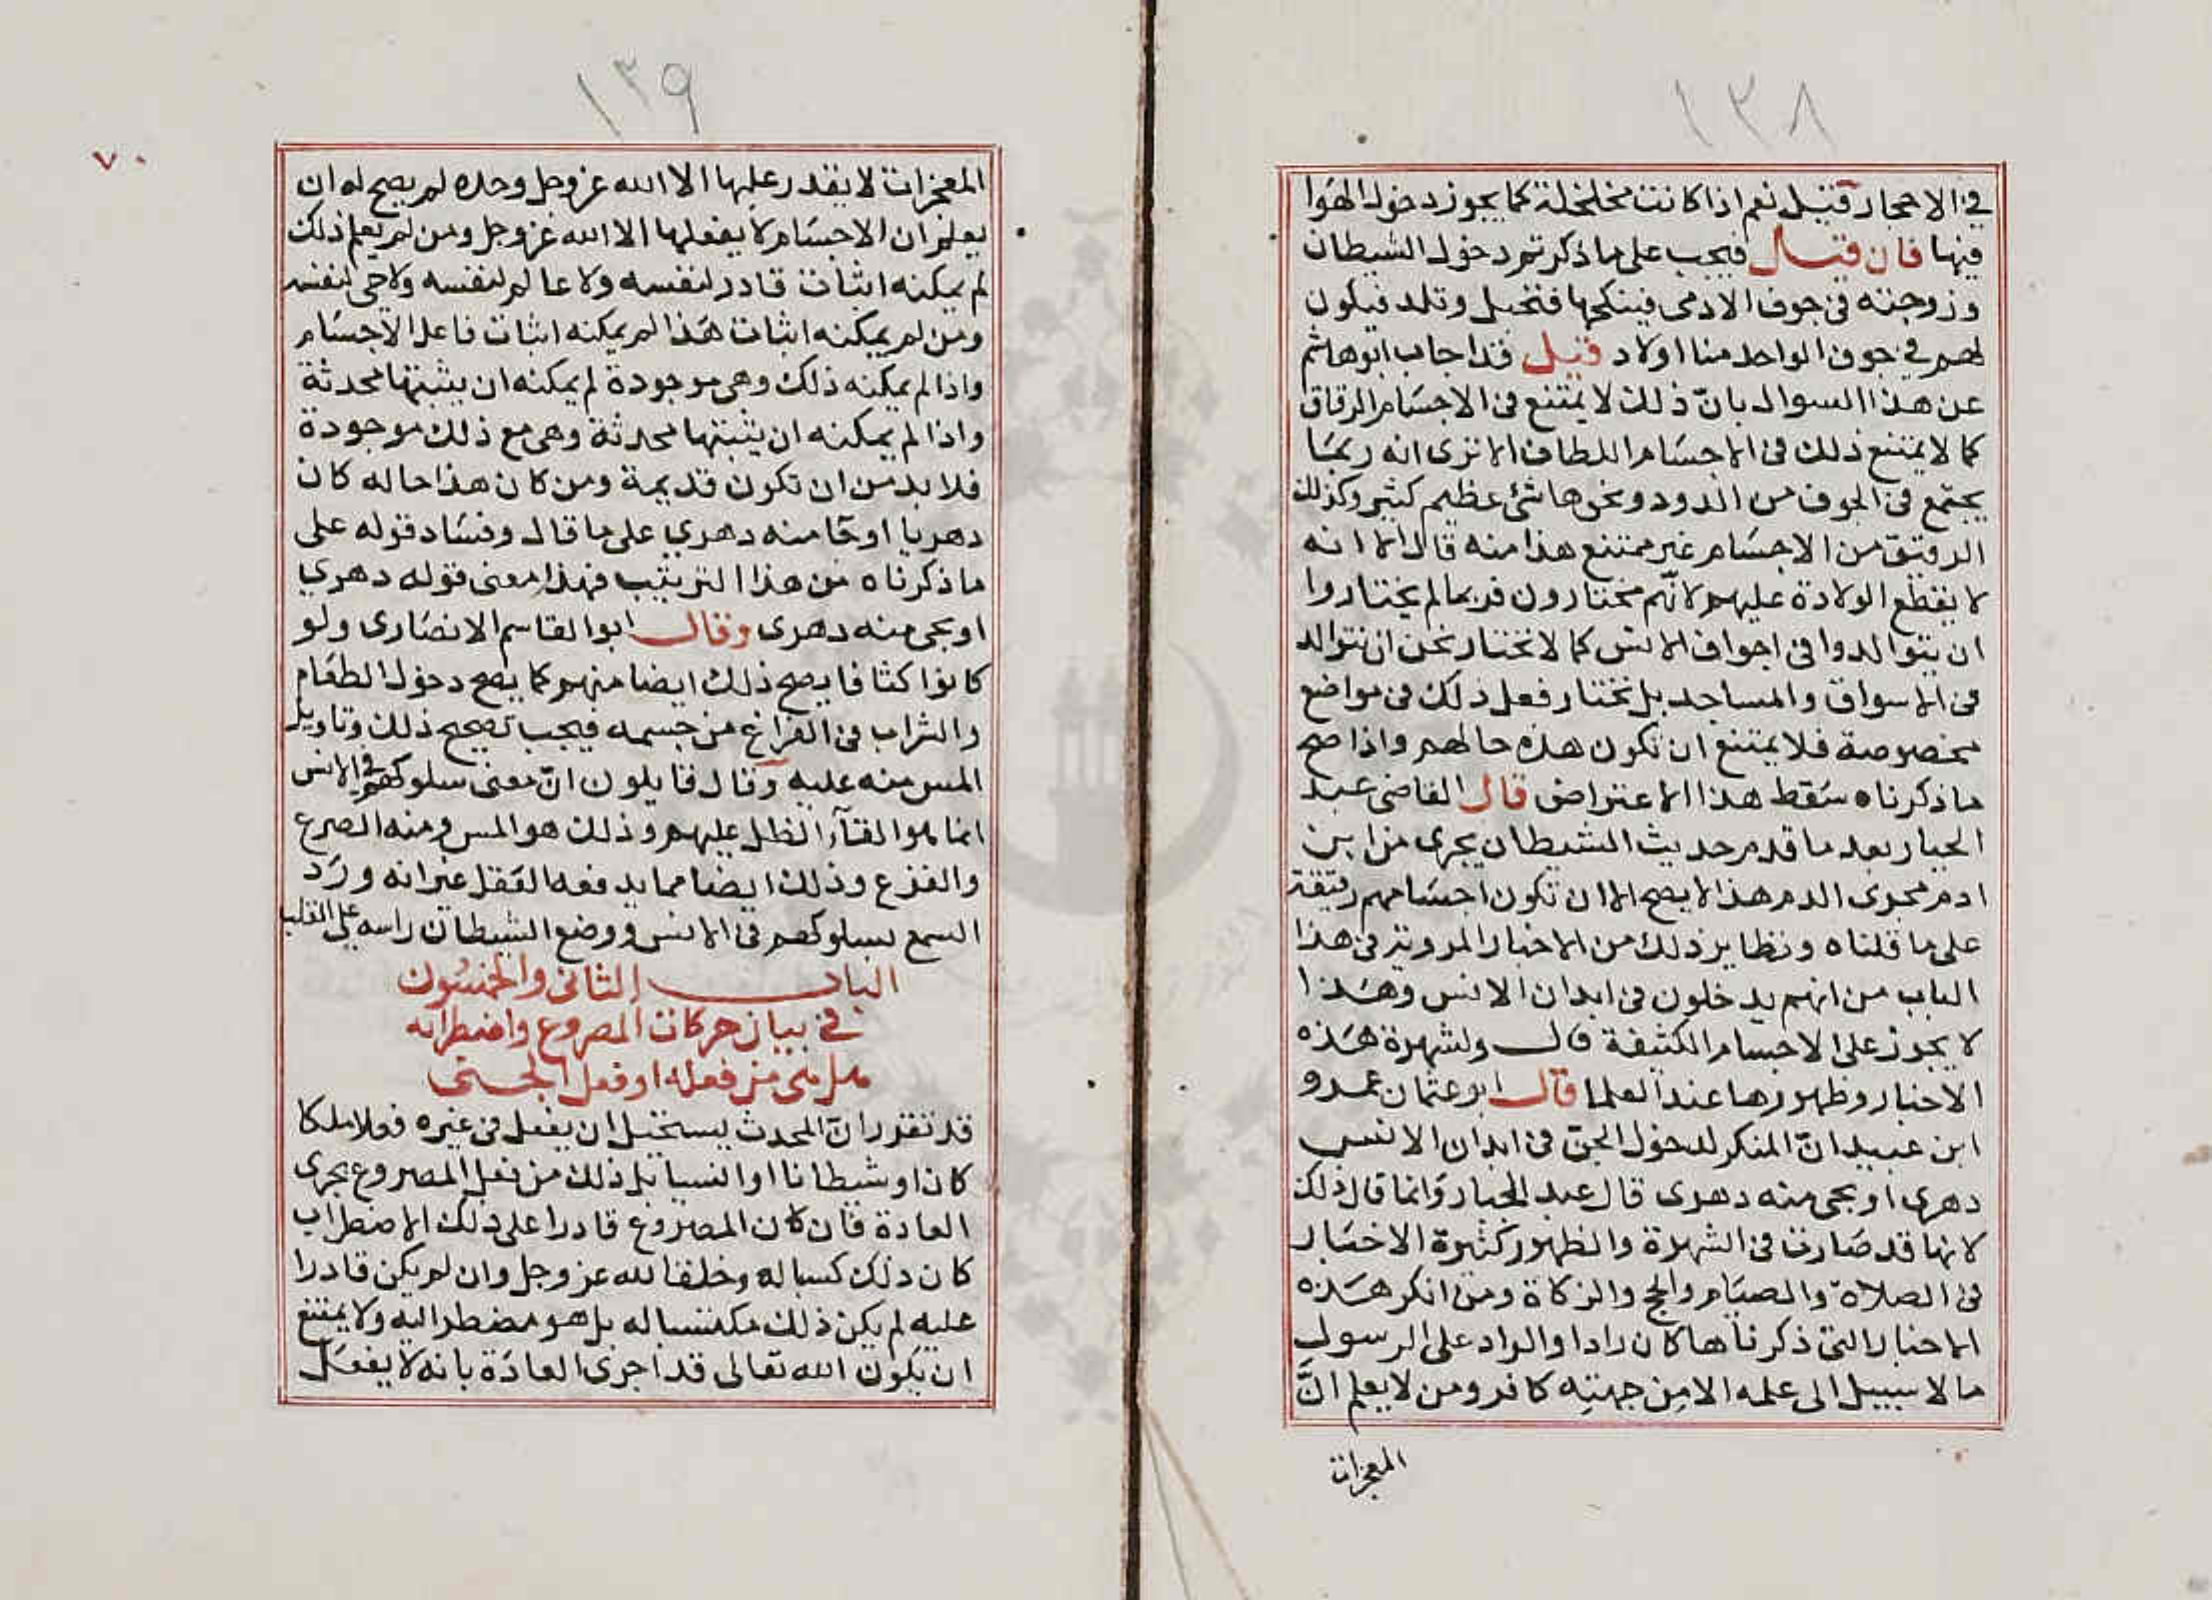 ١٣٨
في الاحجار قيل نعم اذا كانت مخلخلة كما يجوز دخول الهوا
فيها فان قيل فيجب على ما ذكرتم دخول الشيطان
وزوجته في جوف الادمى فينكحها فتحبل وتلد فيكون
لهم في جوف الواحد منا اولاد قيل قد اجاب ابو هاشم
عن هذا السوال بانّ ذلك لا يمتنع في الاجسام الرقاق
كما لا يمتنع ذلك في الاجسام اللطاف الا ترى انه ربما
يجتمع في الجوف من الدود ونحوها شئ عظيم كثير وكذلك
الرقيق من الاجسام غير ممتنع هذا منه قال الا انه
لا يقطع الولادة عليهم لانّهم مختارون فربما لم يختاروا
ان يتوالدوا في اجواف الانس كما لا نختار نحن ان نتوالد
في الاسواق والمساجد بل نختار فعل ذلك في مواضع
مخصوصة فلا يمتنع ان تكون هذه حالهم واذا صح
ما ذكرناه سقط هذا الاعتراض قال القاضى عبد
الجبار بعد ما قدم حديث الشيطان يجرى من ابن
ادم مجرى الدم هذا لا يصح الا ان تكون اجسامهم رقيقة
على ما قلناه ونظاير ذلك من الاخبار المروية في هذا
الباب من انهم يدخلون في ابدان الانس وهذا
لا يجوز على الاجسام الكثيفة قال ولشهرة هذه
الاخبار وظهورها عند العلما قال ابو عثمان عمرو
ابن عبيد انّ المنكر لدخول الجن في ابدان الانس
دهرى او يجى منه دهرى قال عبد الجبار وانما قال ذلك
لانها قد صارت في الشهرة والظهور كثيرة الاخبار
في الصلاة والصيام والحج والزكاة ومن انكر هذه
الاخبار التى ذكرناها كان رادا والراد على الرسول
ما لا سبيل الى علمه الا من جهته كافر ومن لا يعلم انّ
المعجزات
١٣٩
٧٠
المعجزات لا يقدر عليها الا الله عز وجل وحده لم يصح له ان
يعلم ان الاجسام لا يفعلها الا الله عز وجل ومن لم يعلم ذلك
لم يمكنه اثبات قادر لنفسه ولا عالم لنفسه ولا حى لنفسه
ومن لم يمكنه اثبات هذا لم يمكنه اثبات فاعل الاجسام
واذا لم يمكنه ذلك وهى موجودة لم يمكنه ان يثبتها محدثة
واذا لم يمكنه ان يثبتها محدثة وهى مع ذلك موجودة
فلا بد من ان تكون قديمة ومن كان هذا حاله كان
دهريا او جا منه دهرى على ما قال وفساد قوله على
ما ذكرناه من هذا الترتيب فهذا معنى قوله دهرى
او يجى منه دهرى وقال ابو القاسم الانصارى ولو
كانوا كثافا يصح ذلك ايضا منهم كما يصح دخول الطعام
والشراب في الفراغ من جسمه فيجب تصحيح ذلك وتاويل
المس منه عليه وقال قايلون انّ معنى سلوكهم في الانس
انما هو القآء الظل عليهم وذلك هو المس ومنه الصرع
والفزع وذلك ايضا مما يدفعه العقل غير انه ورد
السمع بسلوكهم في الانس ووضع الشيطان راسه على القلب
الباب الثانى والخمسون
في بيان حركات المصروع واضطرابه
هل هى من فعله او فعل الجنى
قد تقرر ان المحدث يستحيل ان يفعل في غيره فعلا ملكا
كان او شيطانا او انسيا بل ذلك من فعل المصروع بجرى
العادة فان كان المصروع قادرا على ذلك الاضطراب
كان ذلك كسبا له وخلقا لله عز وجل وان لم يكن قادرا
عليه لم يكن ذلك مكتسبا له بل هو مضطر اليه ولا يمتنع
ان يكون الله تعالى قد اجرى العادة بانه لا يفعل